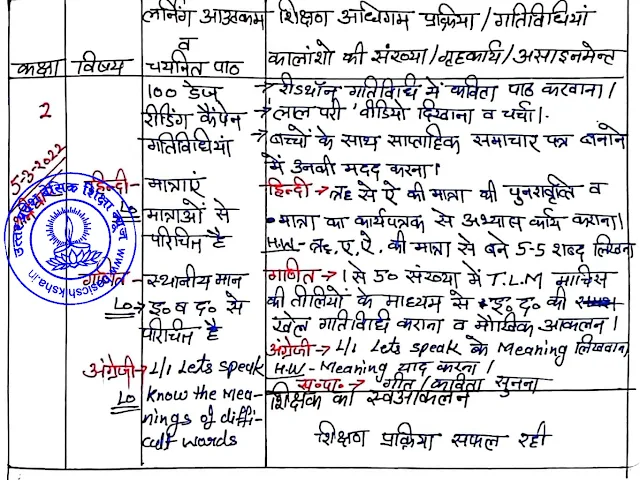 लर्निंग आउटकम
व
चयनित पाठ
शिक्षण अधिगम प्रक्रिया/गतिविधियां
कालांशो की संख्या/गृहकार्य/असाइनमेन्ट
कक्षा
विषय
2
5-3-2022
100 डेज
रीडिंग कैंपेन
गतिविधियां
→ रीडथॉन गतिविधि में कविता पाठ करवाना।
→ 'लाल परी' वीडियो दिखाना व चर्चा।
→ बच्चों के साथ साप्ताहिक समाचार पत्र बनाने
में उनकी मदद करना।
हिन्दी - मात्राएं
LO
मात्राओं से
परिचित है
हिन्दी → ऋ से ऐ की मात्रा की पुनरावृत्ति व
मात्रा का कार्यपत्रक से अभ्यास कार्य कराना।
H.W - ऋ, ए, ऐ, की मात्रा से बने 5-5 शब्द लिखना
गणित - स्थानीय मान
LO → इ० व द० से
परिचित है
गणित → 1 से 50 संख्या में T.L.M माचिस
की तीलियों के माध्यम से इ० द० की
खेल गतिविधि कराना व मौखिक आकलन।
अंग्रेजी → L/1 Lets speak
LO
Know the mea-
nings of diffi-
cult words
अंग्रेजी → L/1 Lets speak के Meaning लिखवाना
H.W - Meaning याद करना।
स०पा० - गीत/कविता सुनना
शिक्षक का स्वआकलन
शिक्षण प्रक्रिया सफल रही